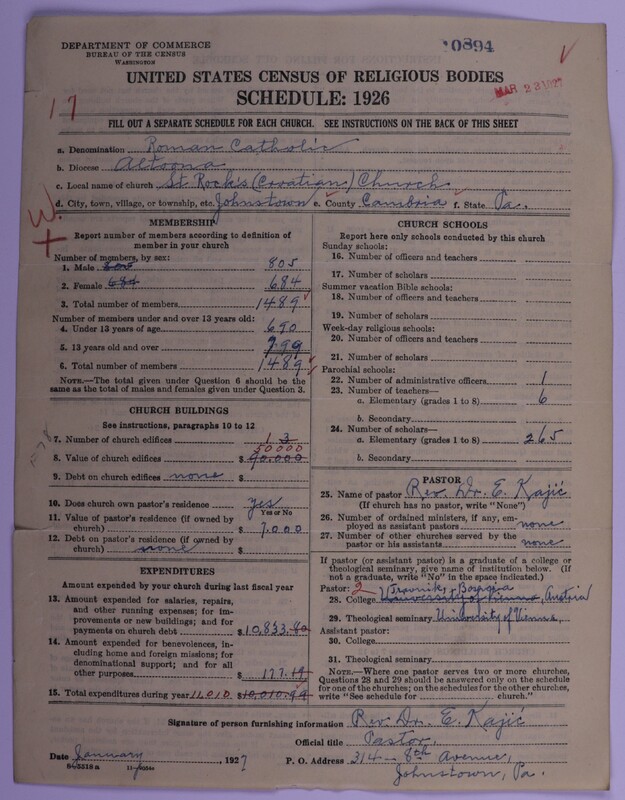 DEPARTMENT OF COMMERCE
BUREAU OF THE CENSUS
WASHINGTON
0894
MAR 23 1927
UNITED STATES CENSUS OF RELIGIOUS BODIES
SCHEDULE: 1926
17
FILL OUT A SEPARATE SCHEDULE FOR EACH CHURCH. SEE INSTRUCTIONS ON THE BACK OF THIS SHEET
a. Denomination Roman Catholic
b. Diocese Altoona
c. Local name of church St Rock's (Croatian) Church
d. City, town, village, or township, etc. Johnstown e. County Cambria f. State Pa.
MEMBERSHIP
Report number of members according to definition of
member in your church
Number of members, by sex:
1. Male 805 805
2. Female 684 684
3. Total number of members 1489
Number of members under and over 13 years old:
4. Under 13 years of age 690
5. 13 years old and over 799
6. Total number of members 1489
NOTE.—The total given under Question 6 should be
the same as the total of males and females given under Question 3.
CHURCH BUILDINGS
See instructions, paragraphs 10 to 12
7. Number of church edifices 1 3
50000
8. Value of church edifices $ 90.000
9. Debt on church edifices none $
10. Does church own pastor's residence yes
Yes or No
11. Value of pastor's residence (if owned by
church) $ 7.000
12. Debt on pastor's residence (if owned by
church) none $
EXPENDITURES
Amount expended by your church during last fiscal year
13. Amount expended for salaries, repairs,
and other running expenses; for im-
provements or new buildings; and for
payments on church debt $ 10,833.40
14. Amount expended for benevolences, in-
cluding home and foreign missions; for
denominational support; and for all
other purposes $ 177.19
15. Total expenditures during year 11,010 $ 10,010.99
CHURCH SCHOOLS
Report here only schools conducted by this church
Sunday schools:
16. Number of officers and teachers
17. Number of scholars
Summer vacation Bible schools:
18. Number of officers and teachers
19. Number of scholars
Week-day religious schools:
20. Number of officers and teachers
21. Number of scholars
Parochial schools:
22. Number of administrative officers 1
23. Number of teachers—
a. Elementary (grades 1 to 8) 6
b. Secondary
24. Number of scholars—
a. Elementary (grades 1 to 8) 265
b. Secondary
PASTOR
25. Name of pastor Rev. Dr. E. Kajić
(If church has no pastor, write "None")
26. Number of ordained ministers, if any, em-
ployed as assistant pastors none
27. Number of other churches served by the
pastor or his assistants none
If pastor (or assistant pastor) is a graduate of a college or
theological seminary, give name of institution below. (If
not a graduate, write "No" in the space indicated.)
Pastor: 2 Travnik, Bosnia
28. College University of Vienna, Austria
29. Theological seminary University of Vienna,
Assistant pastor:
30. College
31. Theological seminary
NOTE.—Where one pastor serves two or more churches,
Questions 28 and 29 should be answered only on the schedule
for one of the churches; on the schedules for the other churches,
write "See schedule for church."
Signature of person furnishing information Rev. Dr. E. Kajić
Official title Pastor,
Date January, 1927 P. O. Address 314 - 8th Avenue,
Johnstown, Pa.